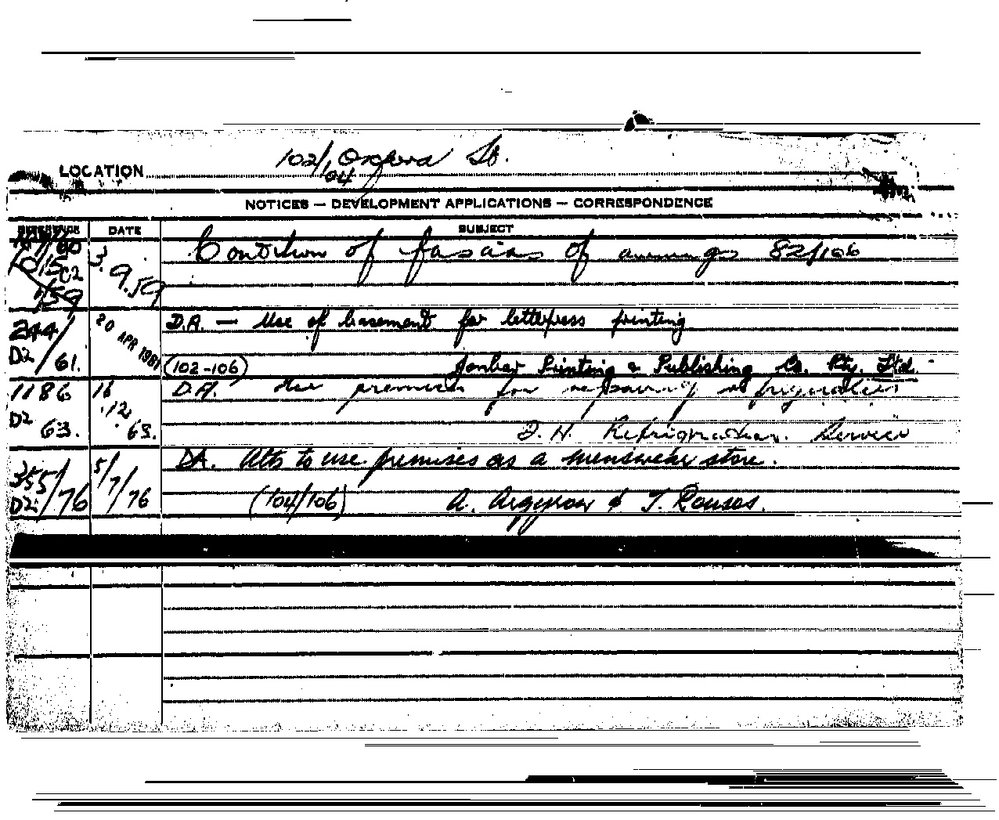 LOCATION 102/104 Oxford St.
NOTICES — DEVELOPMENT APPLICATIONS — CORRESPONDENCE
REFERENCE DATE SUBJECT
3.9.59 Condition of fascias of awnings 82/106
244/D2/61. 20 APR 1961 D.A. — Use of basement for letterpress printing
(102-106) Printing & Publishing Co. Pty. Ltd.
1186 D2 63. 16.12.63. D.A. Use premises for repairing refrigerators
J. H. Refrigeration Service
355/D2/76 5/7/76 DA. Alts to use premises as a menswear store.
(104/106) A. Argyrou & T. Rousos.